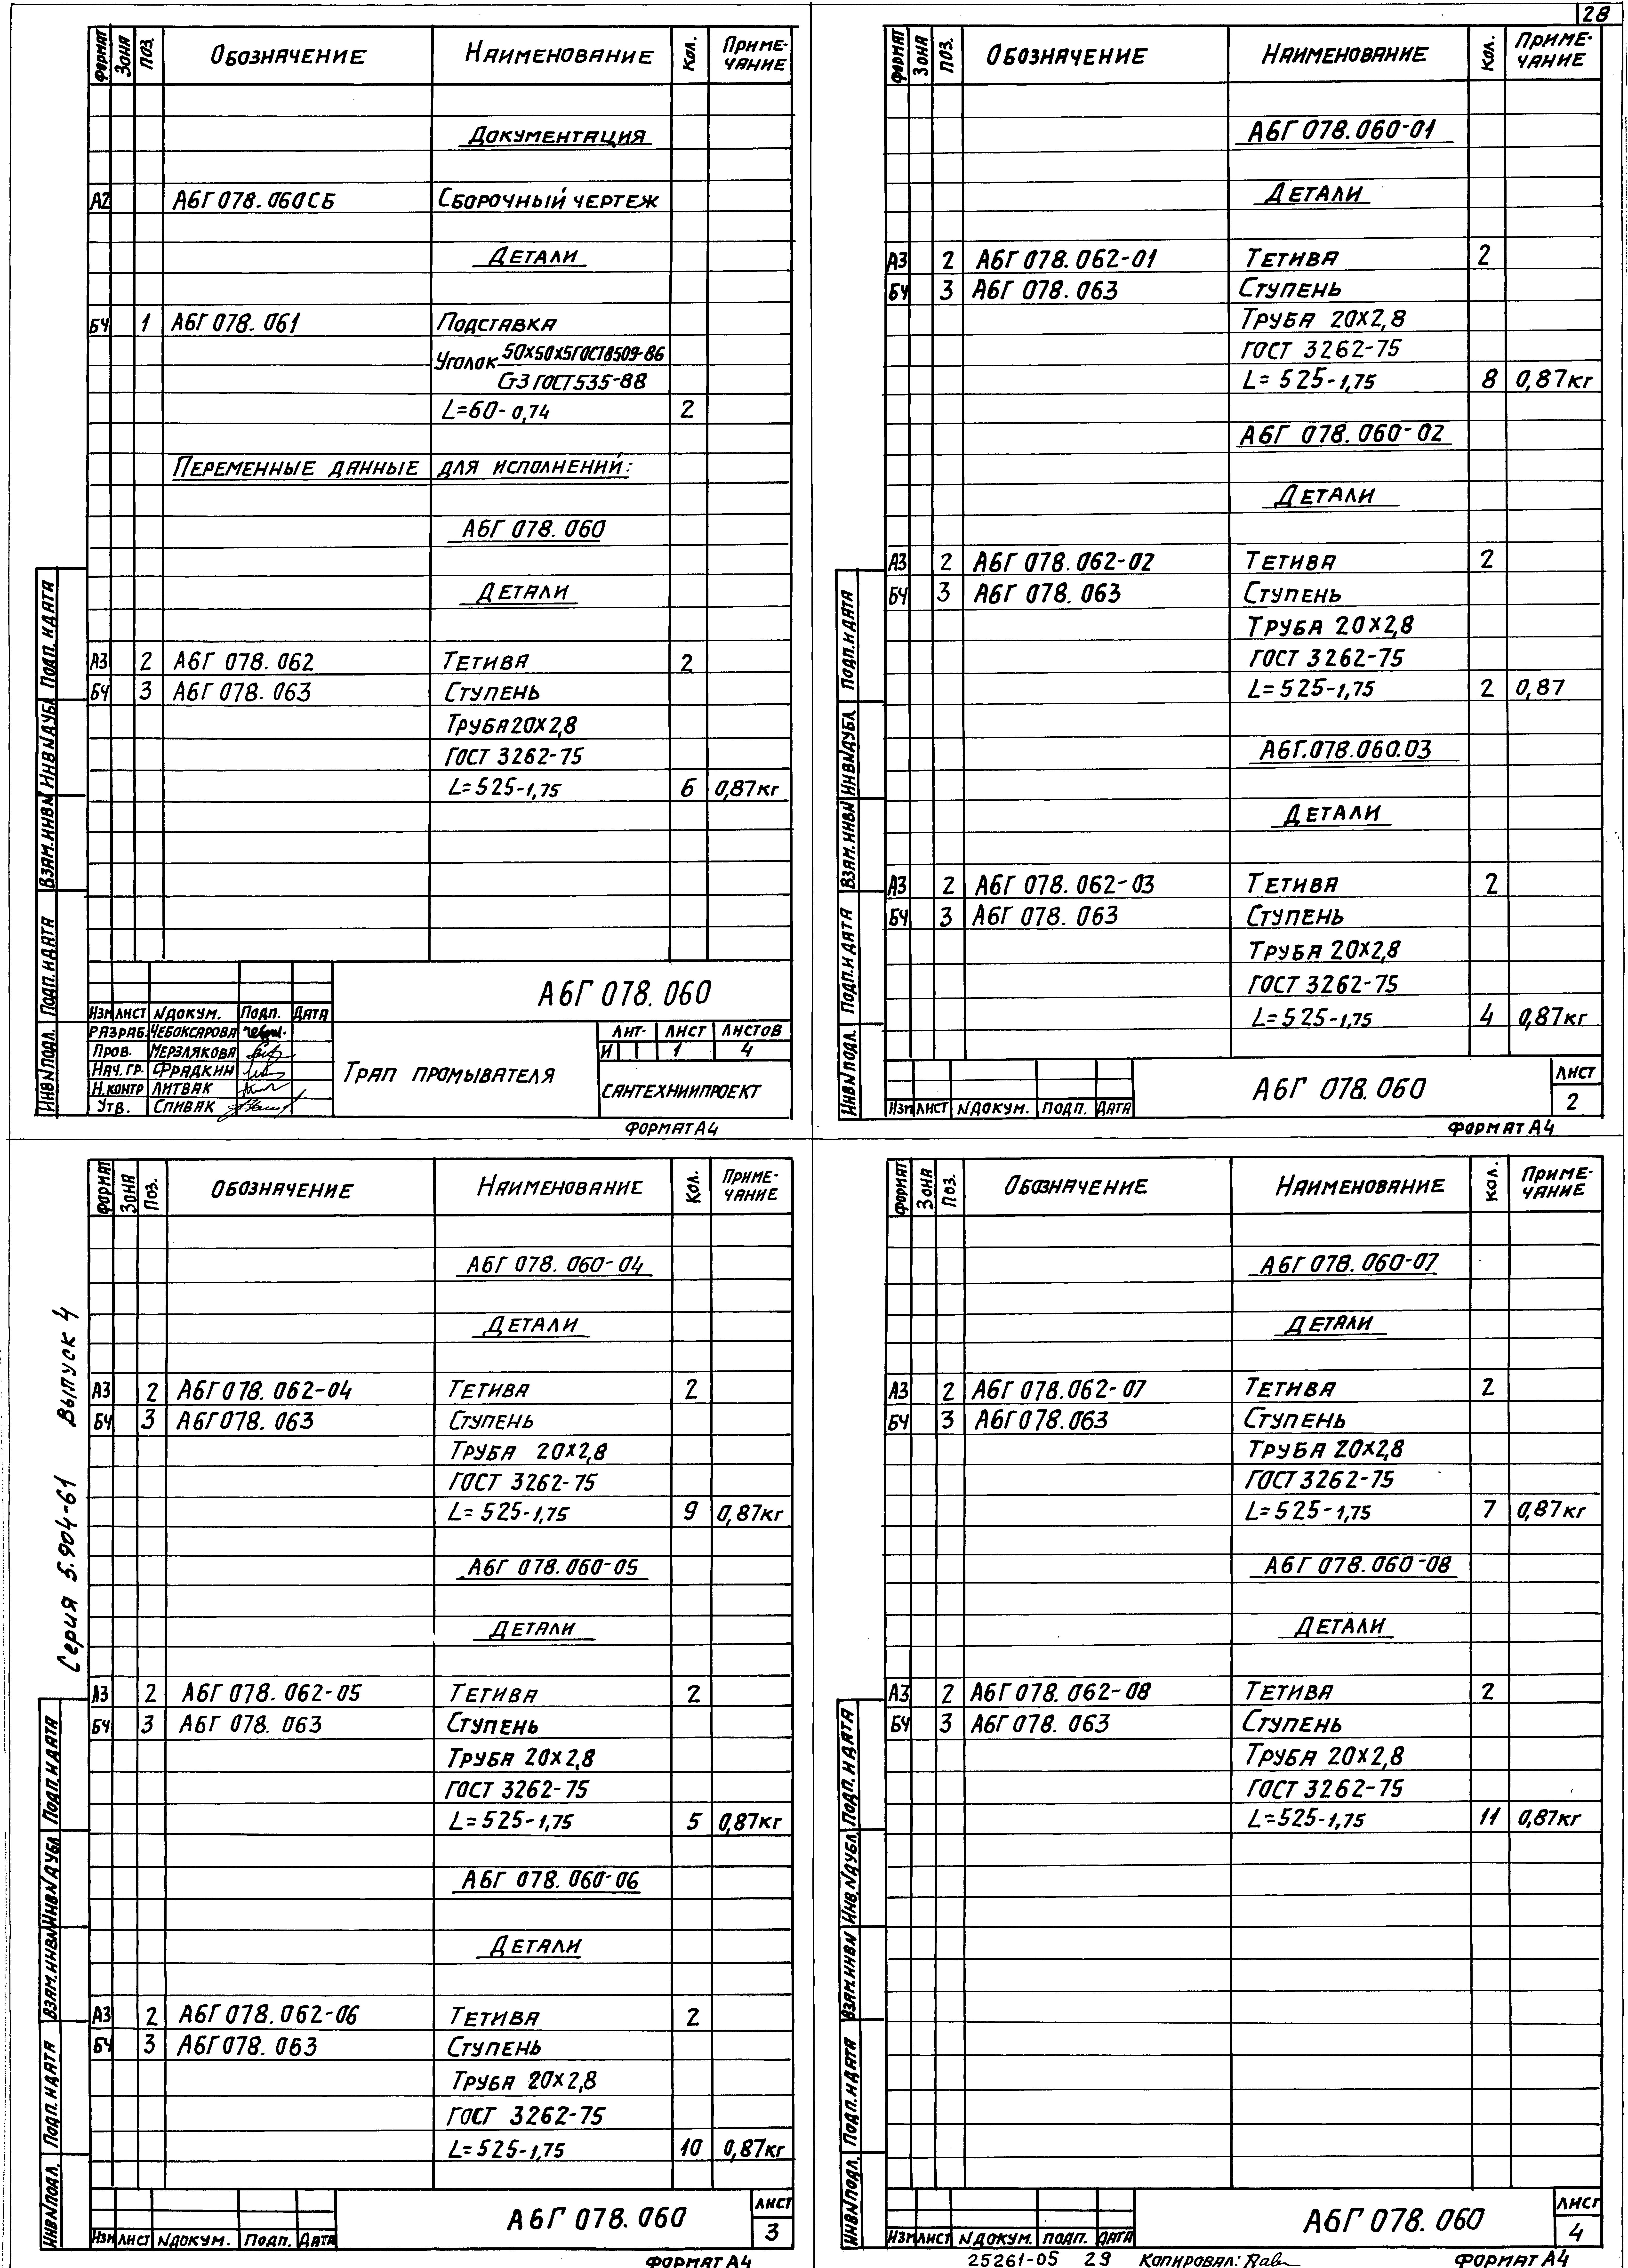 28
Формат Зона Поз. Обозначение Наименование Кол. Приме-
чание
Документация
А2 А6Г 078.060СБ Сборочный чертеж
Детали
БЧ 1 А6Г 078.061 Подставка
Уголок 50х50х5 ГОСТ 8509-86
Ст3 ГОСТ 535-88
L=60-0,74 2
Переменные данные для исполнений:
А6Г 078.060
Детали
А3 2 А6Г 078.062 Тетива 2
БЧ 3 А6Г 078.063 Ступень
Труба 20х2,8
ГОСТ 3262-75
L=525-1,75 6 0,87кг
Инв№подл. Подп. и дата Взам.инв№ Инв№дубл Подп. и дата
А6Г 078.060
Изм Лист №докум. Подп. Дата
Разраб. Чебоксарова
Пров. Мерзлякова
Нач. гр. Фрадкин
Н.контр Литвак
Утв. Спивак
Трап промывателя
Лит. Лист Листов
И 1 4
САНТЕХНИИПРОЕКТ
Формат А4
Формат Зона Поз. Обозначение Наименование Кол. Приме-
чание
А6Г 078.060-01
Детали
А3 2 А6Г 078.062-01 Тетива 2
БЧ 3 А6Г 078.063 Ступень
Труба 20х2,8
ГОСТ 3262-75
L=525-1,75 8 0,87кг
А6Г 078.060-02
Детали
А3 2 А6Г 078.062-02 Тетива 2
БЧ 3 А6Г 078.063 Ступень
Труба 20х2,8
ГОСТ 3262-75
L=525-1,75 2 0,87
А6Г.078.060.03
Детали
А3 2 А6Г 078.062-03 Тетива 2
БЧ 3 А6Г 078.063 Ступень
Труба 20х2,8
ГОСТ 3262-75
L=525-1,75 4 0,87кг
Инв№подл. Подп. и дата Взам.инв№ Инв№дубл. Подп. и дата
Изм Лист №докум. Подп. Дата
А6Г 078.060
Лист
2
Формат А4
Серия 5.904-61 Выпуск 4
Формат Зона Поз. Обозначение Наименование Кол. Приме-
чание
А6Г 078.060-04
Детали
А3 2 А6Г 078.062-04 Тетива 2
БЧ 3 А6Г 078.063 Ступень
Труба 20х2,8
ГОСТ 3262-75
L=525-1,75 9 0,87кг
А6Г 078.060-05
Детали
А3 2 А6Г 078.062-05 Тетива 2
БЧ 3 А6Г 078.063 Ступень
Труба 20х2,8
ГОСТ 3262-75
L=525-1,75 5 0,87кг
А6Г 078.060-06
Детали
А3 2 А6Г 078.062-06 Тетива 2
БЧ 3 А6Г 078.063 Ступень
Труба 20х2,8
ГОСТ 3262-75
L=525-1,75 10 0,87кг
Инв№подл. Подп. и дата Взам.инв№ Инв№дубл Подп. и дата
Изм Лист №докум. Подп. Дата
А6Г 078.060
Лист
3
Формат А4
Формат Зона Поз. Обозначение Наименование Кол. Приме-
чание
А6Г 078.060-07
Детали
А3 2 А6Г 078.062-07 Тетива 2
БЧ 3 А6Г 078.063 Ступень
Труба 20х2,8
ГОСТ 3262-75
L=525-1,75 7 0,87кг
А6Г 078.060-08
Детали
А3 2 А6Г 078.062-08 Тетива 2
БЧ 3 А6Г 078.063 Ступень
Труба 20х2,8
ГОСТ 3262-75
L=525-1,75 11 0,87кг
Инв№подл. Подп. и дата Взам.инв№ Инв.№дубл. Подп. и дата
Изм Лист №докум. Подп. Дата
А6Г 078.060
Лист
4
25261-05 29 Копировал: Формат А4